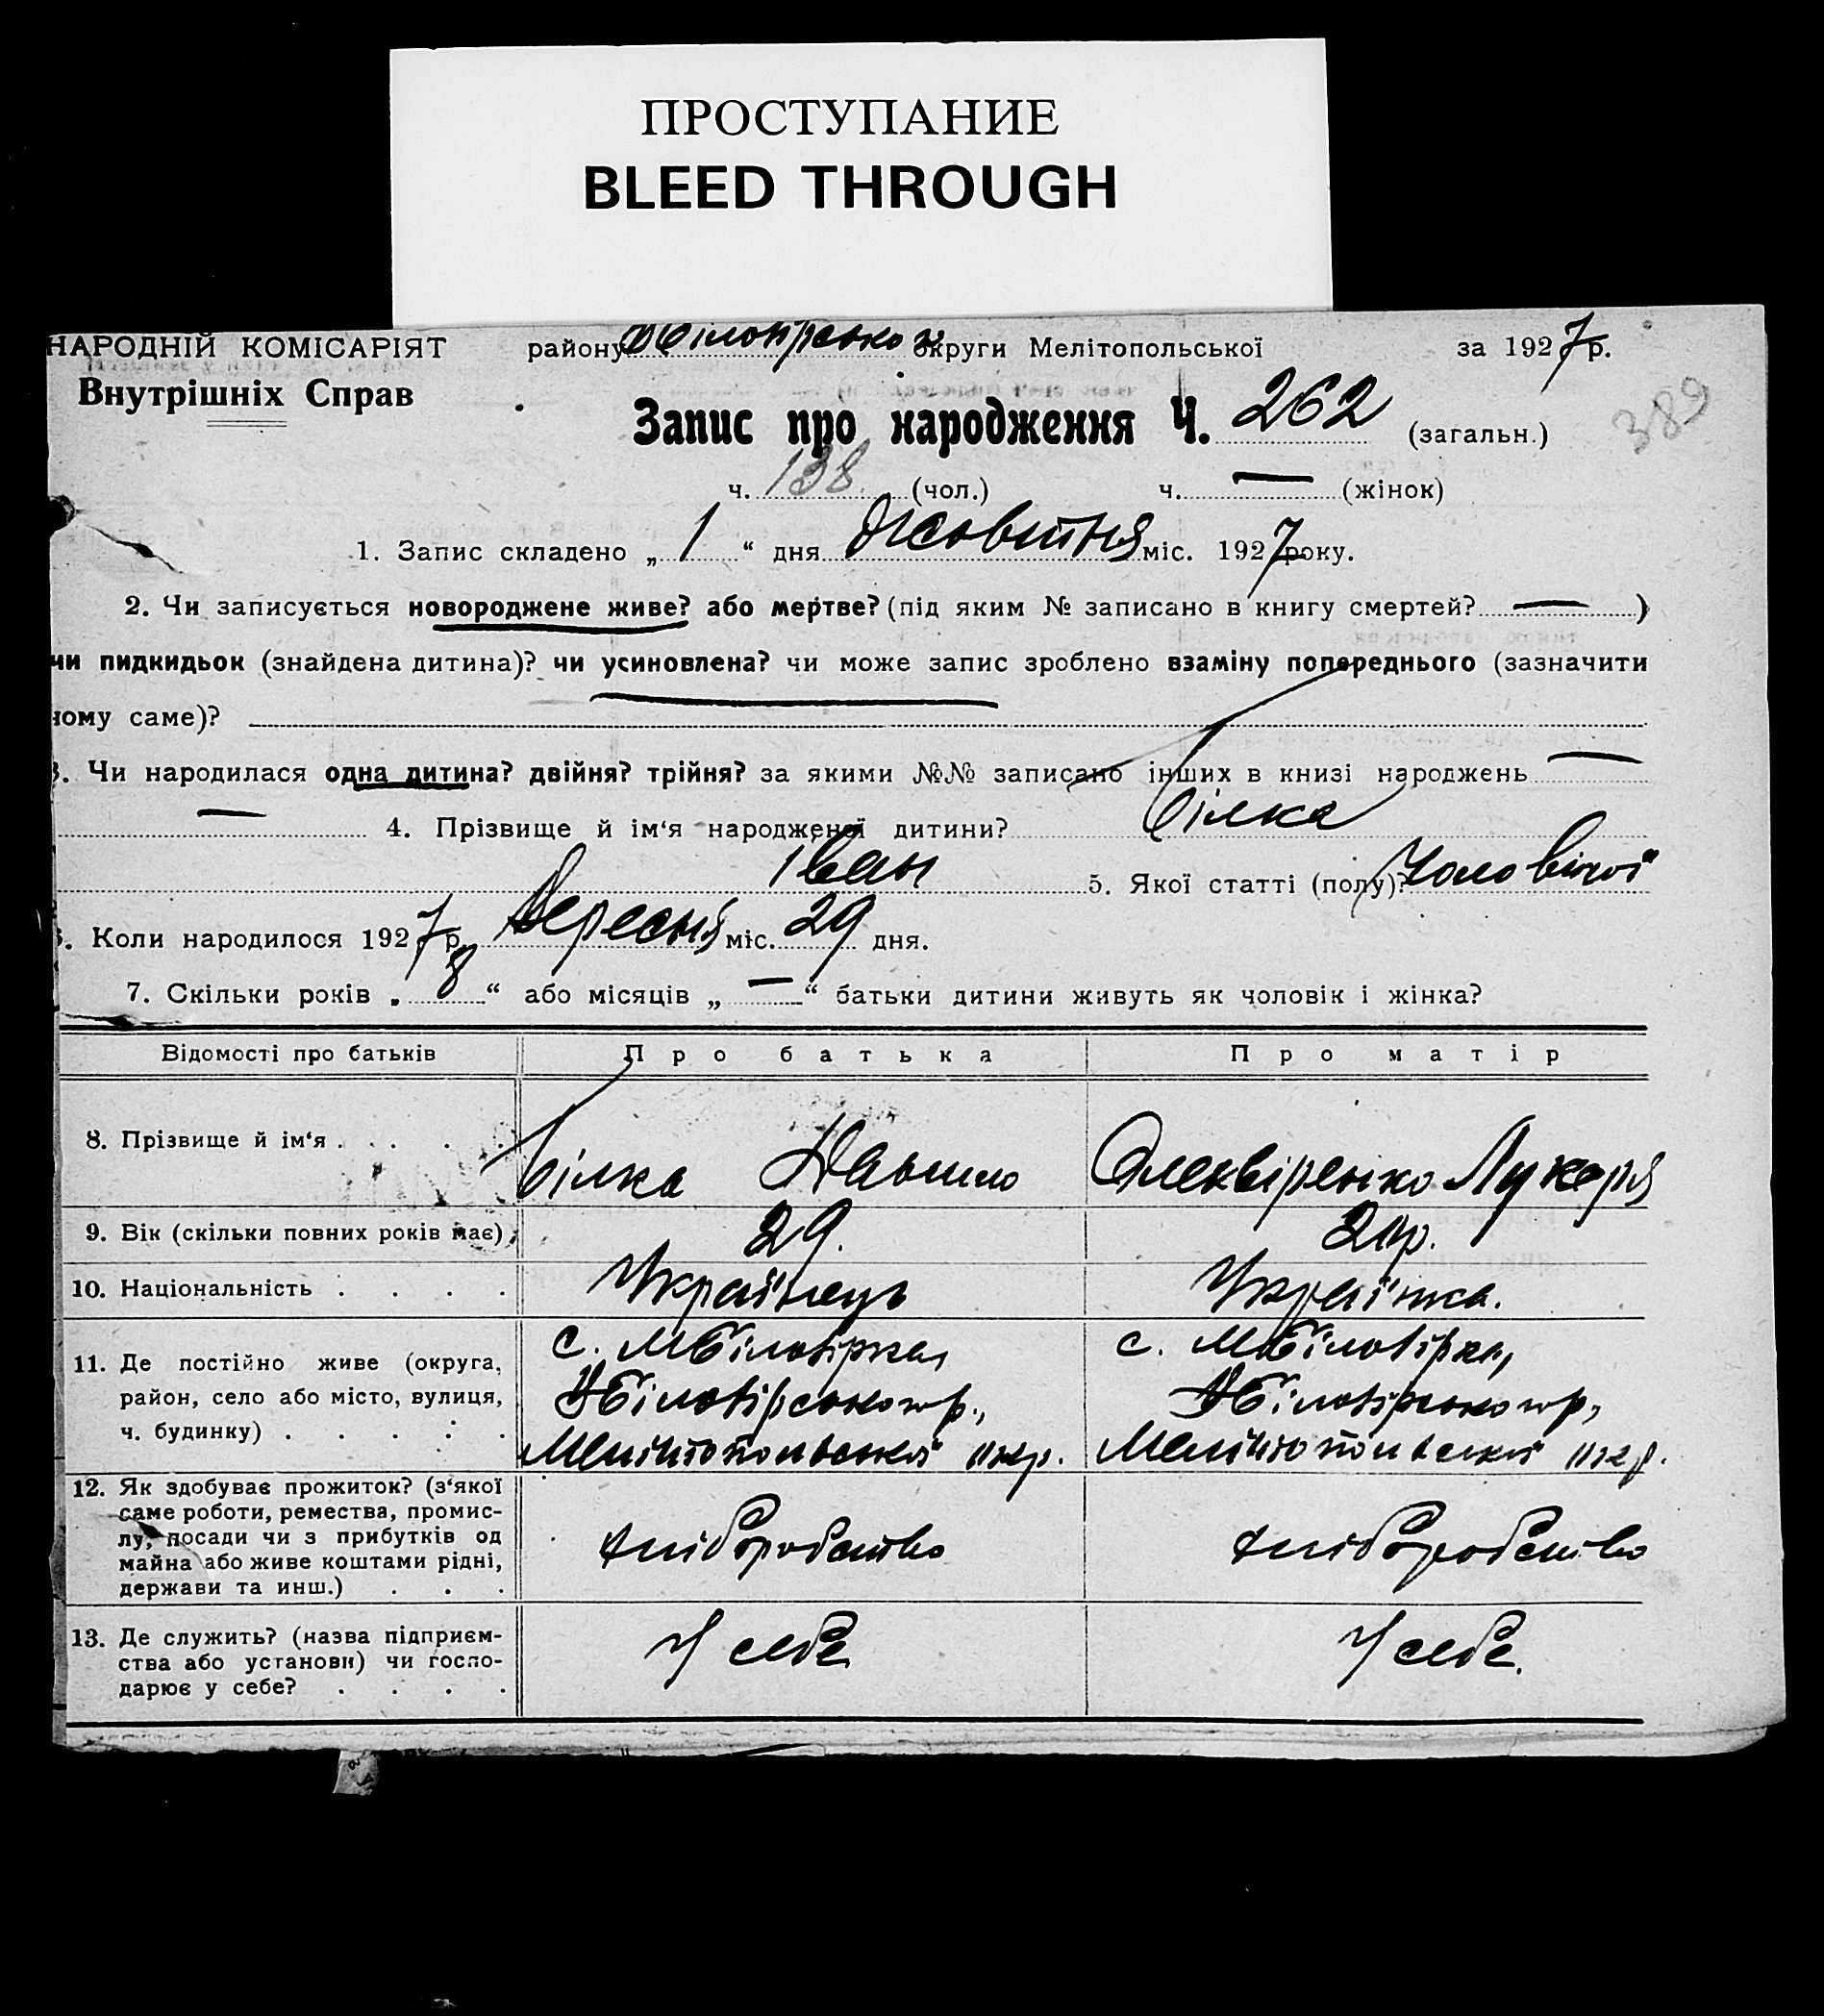 ПРОСТУПАНИЕ
BLEED THROUGH
НАРОДНІЙ КОМІСАРІЯТ району округи Мелітопольської за 1927 р.
Внутрішніх Справ
Запис про народження Ч. 262 (загальн.) 389
ч. 138 (чол.) ч. — (жінок)
1. Запис складено „ 1 “ дня Жовтня міс. 1927 року.
2. Чи записується новороджене живе? або мертве? (під яким № записано в книгу смертей? — )
чи пидкидьок (знайдена дитина)? чи усиновлена? чи може запис зроблено взаміну попереднього (зазначити
чому саме)?
3. Чи народилася одна дитина? двійня? трійня? за якими №№ записано інших в книзі народжень —
— 4. Прізвище й ім‘я народженої дитини? Білка
Іван 5. Якої статті (полу)? Чоловічої
6. Коли народилося 1927 р. Вересня міс. 29 дня.
7. Скільки років „ 8 “ або місяців „ — “ батьки дитини живуть як чоловік і жінка?
Відомості про батьків Про батька Про матір
8. Прізвище й ім‘я . . . . Білка Данило Лукеря
9. Вік (скільки повних років має) 29.
10. Національність . . . . Українець Українка.
11. Де постійно живе (округа, с. МБілозірка, с. МБілозірка,
район, село або місто, вулиця,
ч. будинку) . . . . . Мелітопольської окр. Мелітопольської окр.
12. Як здобуває прожиток? (з‘якої
саме роботи, ремества, промис-
лу, посади чи з прибутків од хліборобство хліборобство
майна або живе коштами рідні,
держави та инш.) . . .
13. Де служить? (назва підприєм- У себе У себе.
ства або установи) чи госпо-
дарює у себе? . . . .